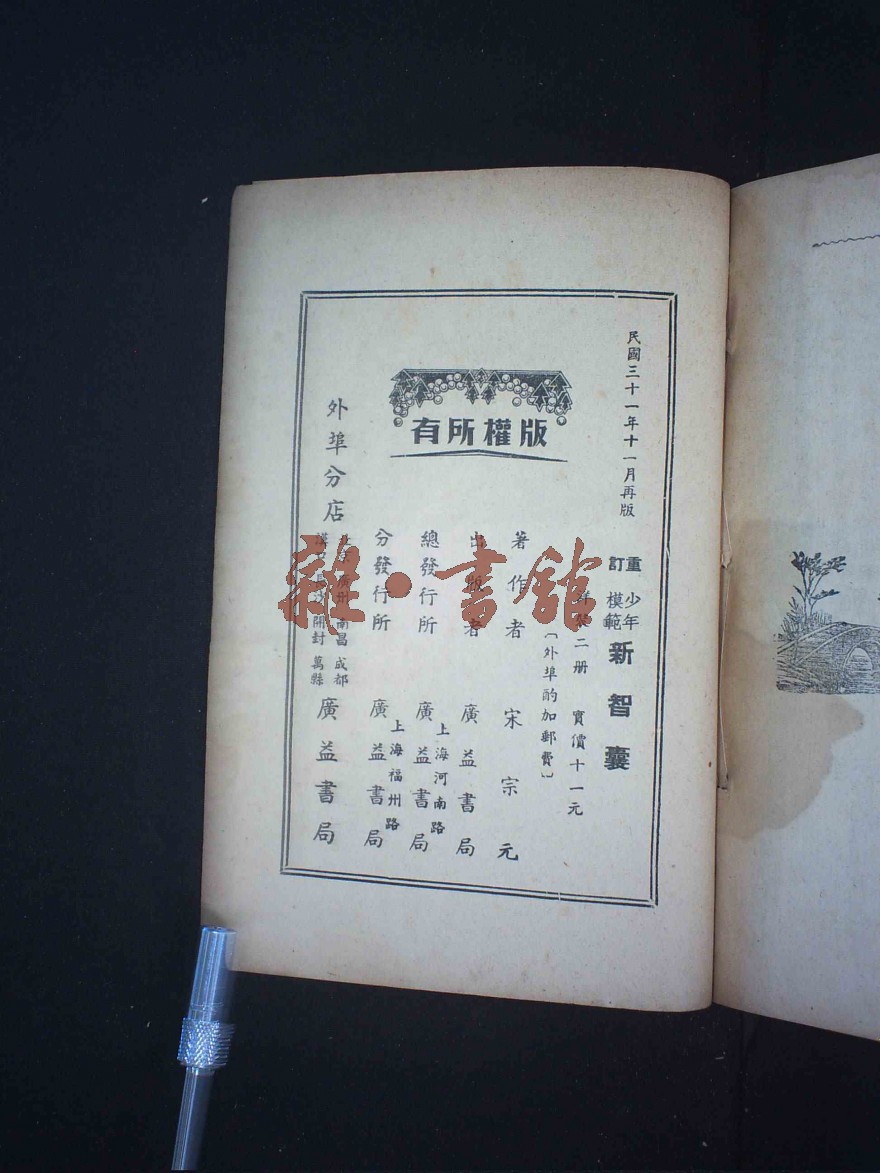 民國三十一年十一月再版
重訂 少年模範 新智囊
洋裝二册 實價十一元
〔外埠酌加郵費〕
版權所有
著作者 宋宗元
出版者 廣益書局
總發行所 上海河南路 廣益書局
分發行所 上海福州路 廣益書局
外埠分店 廣州 南昌 成都 漢口 長沙 開封 萬縣 廣益書局
雜·書館